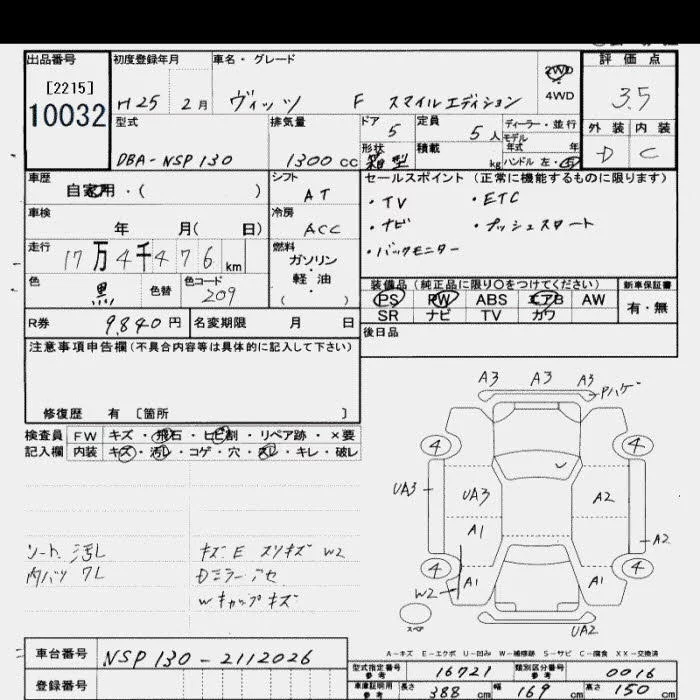 出品番号 初度登録年月 車名・グレード 2WD 4WD 評価点
[2215]
10032 H25 2月 ヴィッツ F スマイルエディション 3.5
型式 排気量 ドア 定員 ディーラー・並行 外装 内装
DBA-NSP130 1300cc 5 5人 モデル年式 年 D C
形状 箱型 積載 kg ハンドル 左・右
車歴 自家用・( ) シフト AT セールスポイント (正常に機能するものに限ります)
・TV ・ETC
車検 年 月( 日) 冷房 ACC ・ナビ ・プッシュスタート
走行 17万4千476km 燃料 ガソリン・軽油・( ) ・バックモニター
色 黒 色替 色コード 209 装備品 (純正品に限り○をつけてください) 新車保証書
PS PW ABS エアB AW 有・無
R券 9,840円 名変期限 月 日 SR ナビ TV カワ
注意事項申告欄(不具合内容等は具体的に記入して下さい) 後日品
修復歴 有 〔箇所 〕
検査員 FW キズ・飛石・ヒビ割・リペア跡・×要
記入欄 内装 キズ・汚レ・コゲ・穴・スレ・キレ・破レ
A3 A3 A3 Pハゲ
4 4
UA3 UA3 A2
A1 A2
4 4
W2 A1 A1
スペア UA2
シート汚レ キズE スリキズ W2
内バリスレ Dミラーアセ
Wキャップキズ
A-キズ E-エクボ U-凹み W-補修跡 S-サビ C-腐食 XX-交換済
車台番号 NSP130-2112026
登録番号
型式指定番号 参考 16721 類別区分番号 参考 0016
車庫証明用 参考 長さ 388cm 幅 169cm 高さ 150cm